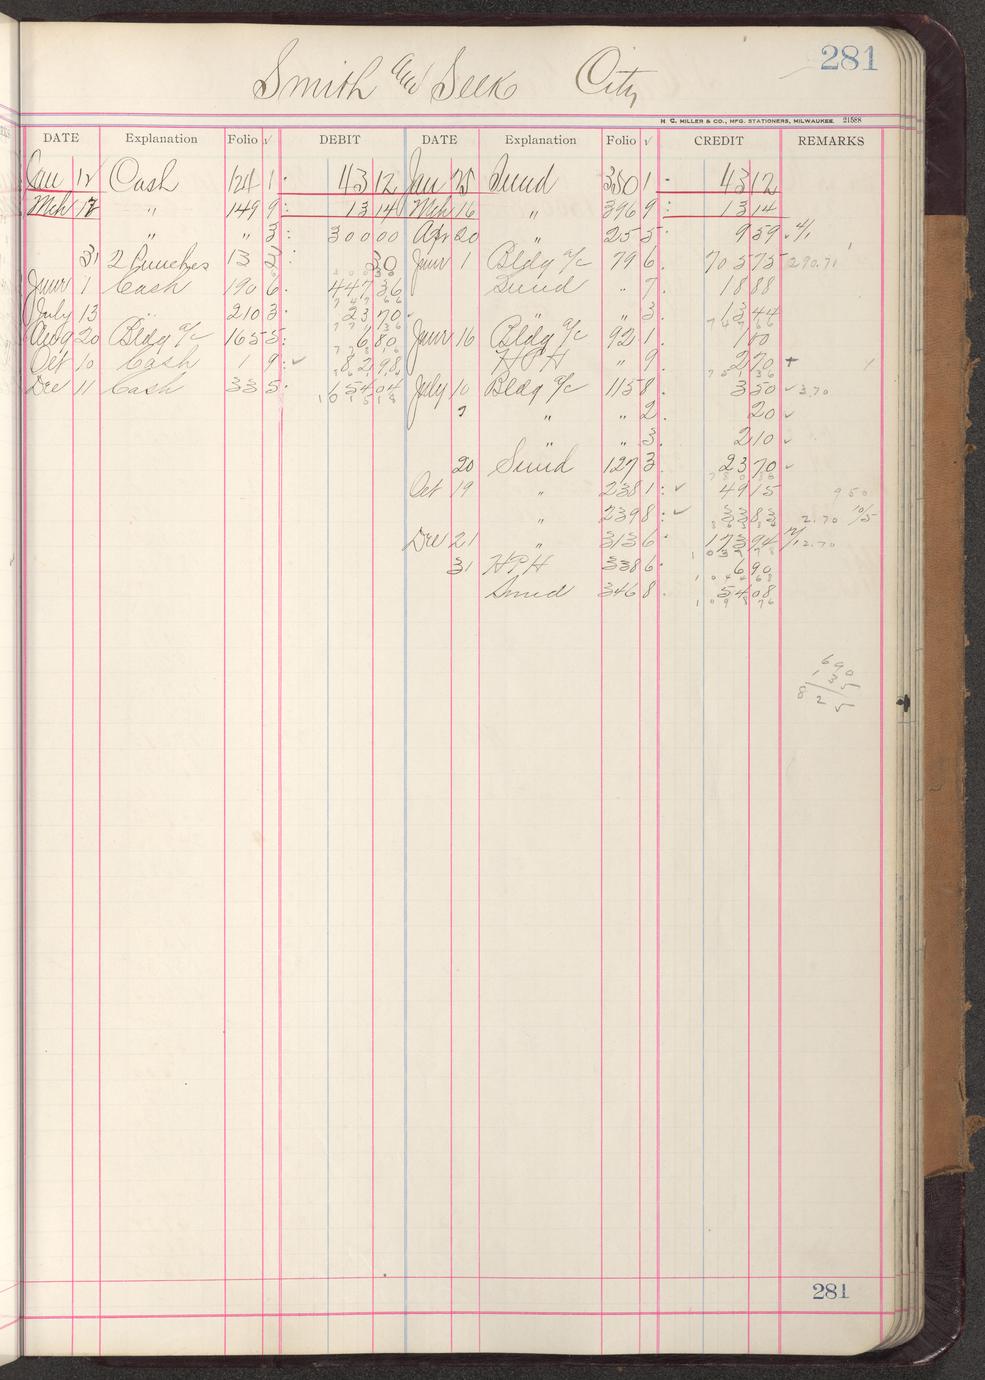 281
Smith and Seek City
H. C. MILLER & CO., MFG. STATIONERS, MILWAUKEE. 21588
DATE Explanation Folio √ DEBIT DATE Explanation Folio √ CREDIT REMARKS
Jan 12 Cash 124 1 43 12 Jan 25 Sund 350 1 43 12
Mch 17 " 149 9 13 14 Mch 16 " 396 9 13 14
" " 3 300 00 Apr 20 " 25 5 9 59 4/1
31 2 Punches 13 2 30 June 1 Bldg a/c 79 6 705 75 290.71
June 1 Cash 190 6 447 36 Sund " 7 18 88
July 13 " 210 3 23 70 " " 3 13 44
Aug 20 Bldg a/c 165 5 6 80 June 16 Bldg a/c 92 1 1 00
Oct 10 Cash 1 9 √ 82 98 H P H " 9 2 70
Dec 11 Cash 33 5 154 04 July 10 Bldg a/c 115 8 3 50 √ 3.70
" " 2 20 √
" " 3 2 10 √
20 Sund 127 3 23 70 √
Oct 19 " 238 1 √ 49 15 9 50
" 239 8 √ 33 83 2.70 10/5
Dec 21 " 313 6 173 94 12.70
31 H P H 338 6 6 90
Sund 346 8 54 08
1 0 9 8 7 6
6 9 0
1 3 5
8 2 5
281